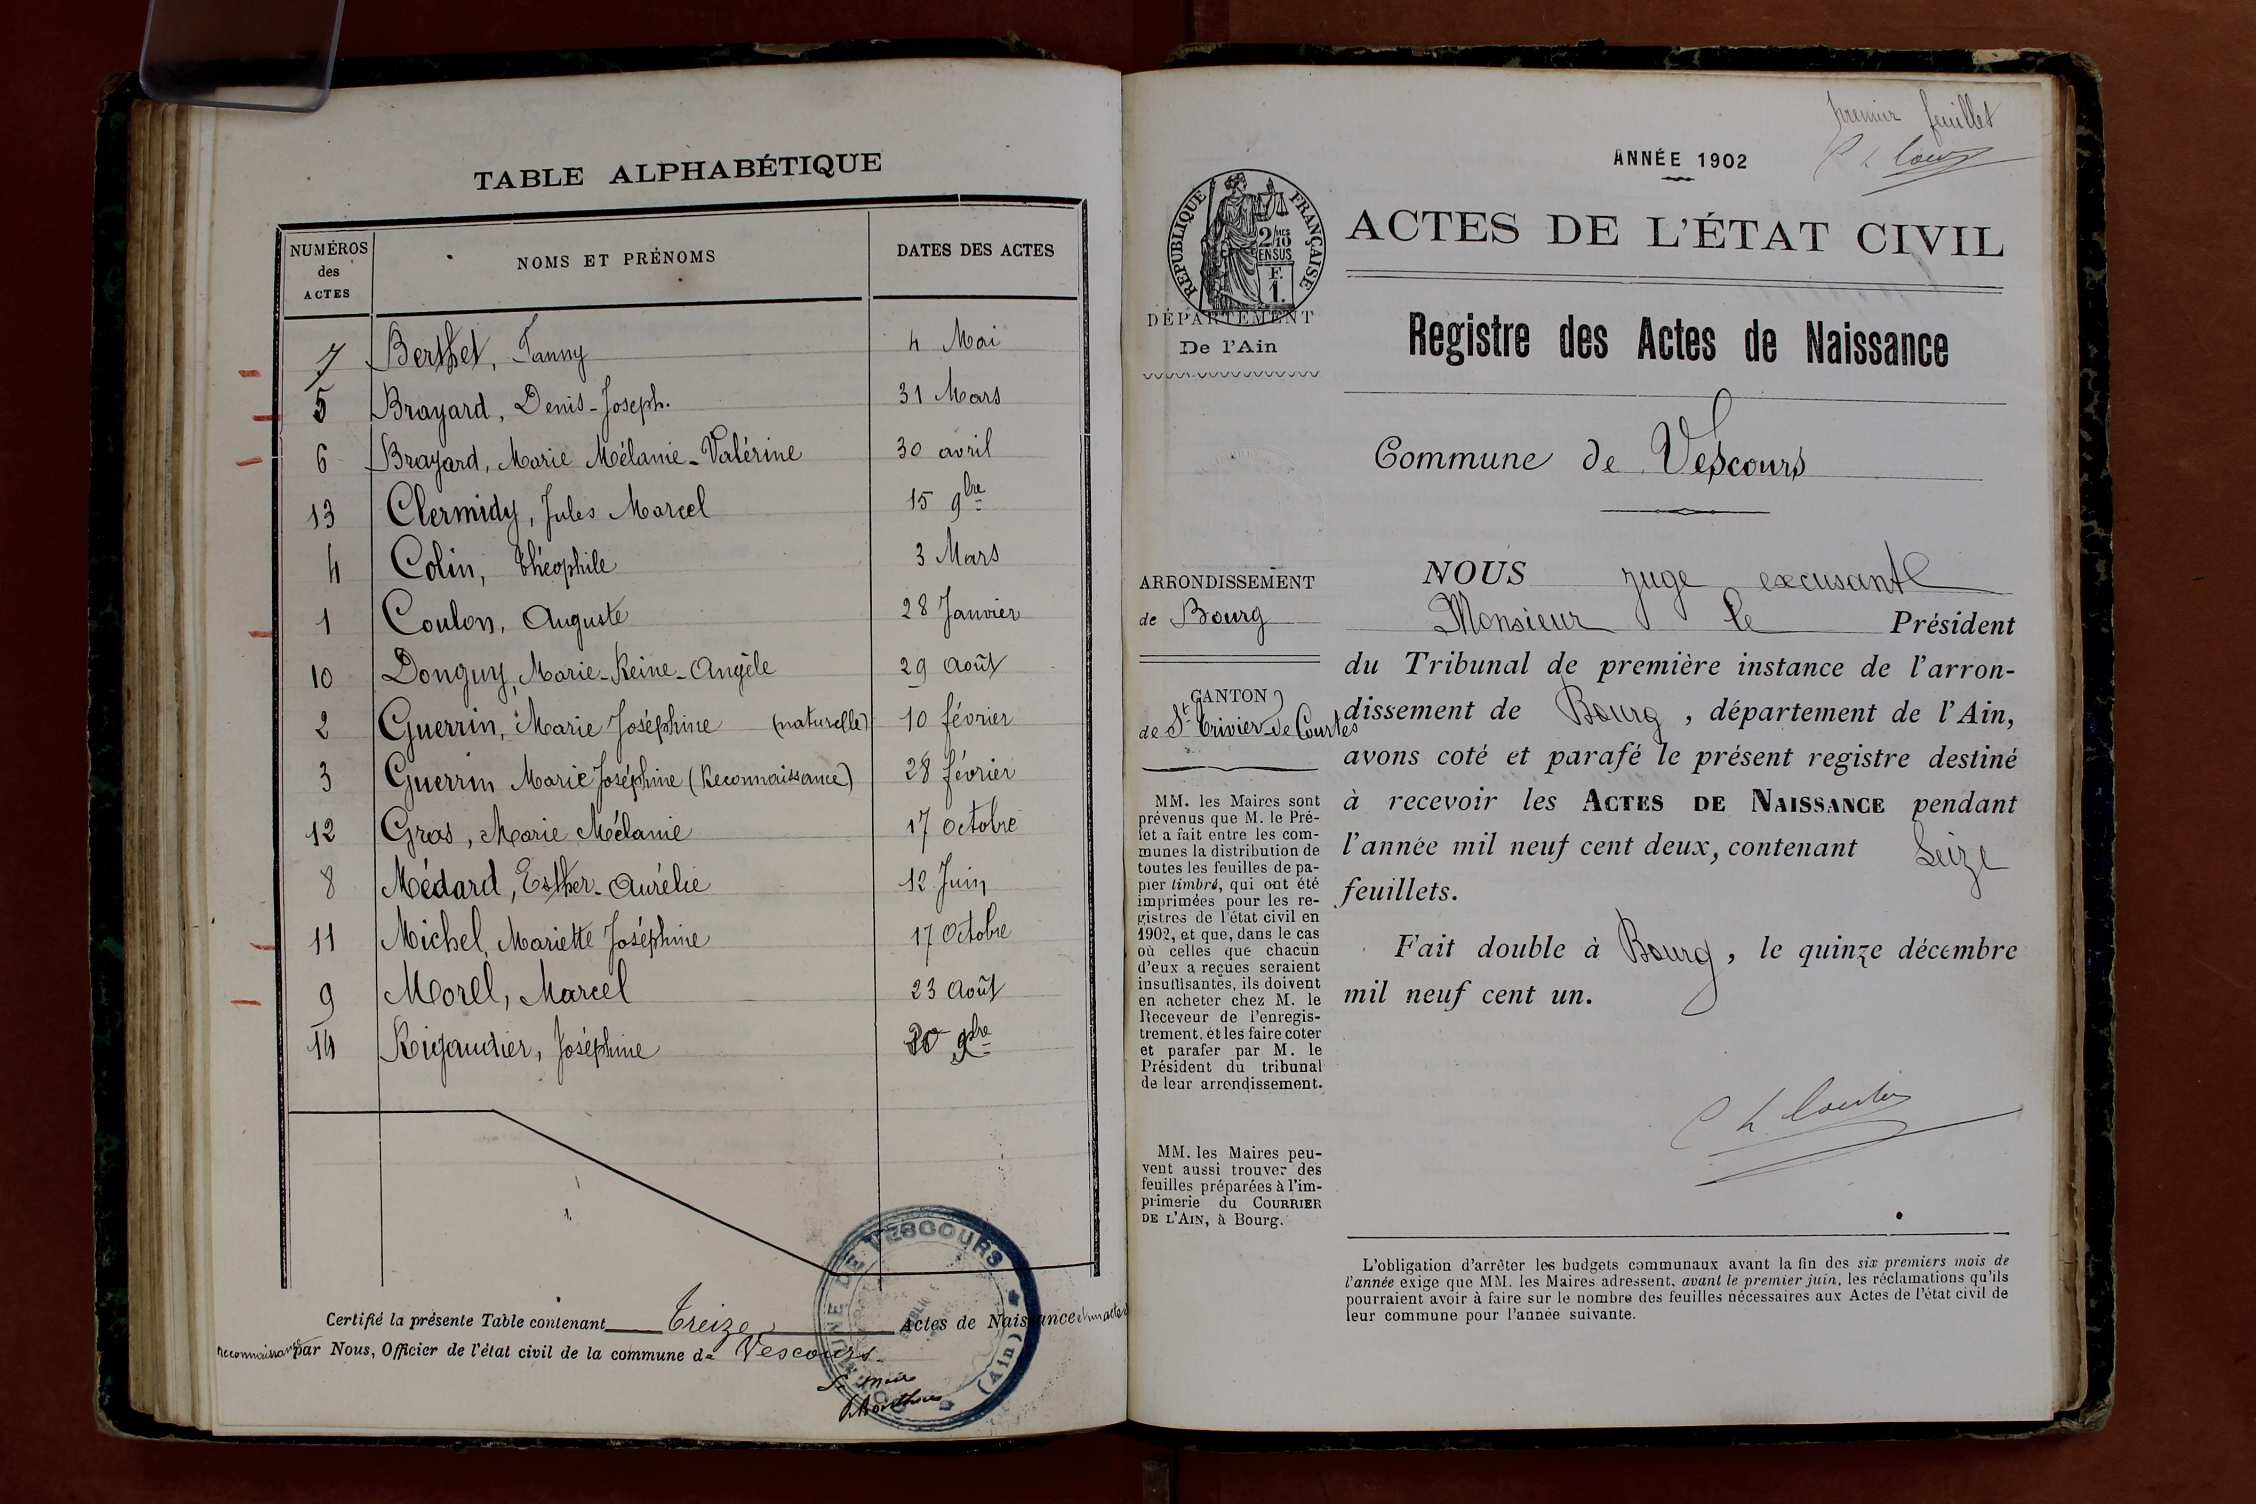 TABLE ALPHABÉTIQUE
NUMÉROS des ACTES NOMS ET PRÉNOMS DATES DES ACTES
7 Berthet, Fanny 4 Mai
5 Brayard, Denis-Joseph. 31 Mars
6 Brayard, Marie Mélanie-Valérine 30 avril
13 Clermidy, Jules Marcel 15 9bre
4 Colin, Théophile 3 Mars
1 Coulon, Auguste 28 Janvier
10 Donguy, Marie-Reine-Angèle 29 Août
2 Guerrin, Marie Joséphine (naturelle) 10 février
3 Guerrin Marie Joséphine (Reconnaissance) 28 février
12 Gras, Marie Mélanie 17 Octobre
8 Médard, Esther-Aurélie 12 Juin
11 Michel, Mariette Joséphine 17 Octobre
9 Morel, Marcel 23 Août
14 Rigaudier, Joséphine 20 9bre
Certifié la présente Table contenant Treize Actes de Naissance et un acte de
reconnaissance par Nous, Officier de l'état civil de la commune de Vescours.
Le Maire
COMMUNE DE VESCOURS
(Ain)
premier feuillet
ANNÉE 1902
RÉPUBLIQUE FRANÇAISE
2/10 MES
EN SUS
F.
1.
ACTES DE L'ÉTAT CIVIL
DÉPARTEMENT
De l'Ain
Registre des Actes de Naissance
Commune de Vescours
ARRONDISSEMENT
de Bourg
CANTON
de St Trivier-de-Courtes
MM. les Maires sont
prévenus que M. le Pré-
fet a fait entre les com-
munes la distribution de
toutes les feuilles de pa-
pier timbré, qui ont été
imprimées pour les re-
gistres de l'état civil en
1902, et que, dans le cas
où celles que chacun
d'eux a reçues seraient
insuffisantes, ils doivent
en acheter chez M. le
Receveur de l'enregis-
trement, et les faire coter
et parafer par M. le
Président du tribunal
de leur arrondissement.
MM. les Maires peu-
vent aussi trouver des
feuilles préparées à l'im-
primerie du COURRIER
DE L'AIN, à Bourg.
NOUS juge excusant
Monsieur le Président
du Tribunal de première instance de l'arron-
dissement de Bourg, département de l'Ain,
avons coté et parafé le présent registre destiné
à recevoir les ACTES DE NAISSANCE pendant
l'année mil neuf cent deux, contenant Seize
feuillets.
Fait double à Bourg, le quinze décembre
mil neuf cent un.
L'obligation d'arrêter les budgets communaux avant la fin des six premiers mois de
l'année exige que MM. les Maires adressent, avant le premier juin, les réclamations qu'ils
pourraient avoir à faire sur le nombre des feuilles nécessaires aux Actes de l'état civil de
leur commune pour l'année suivante.